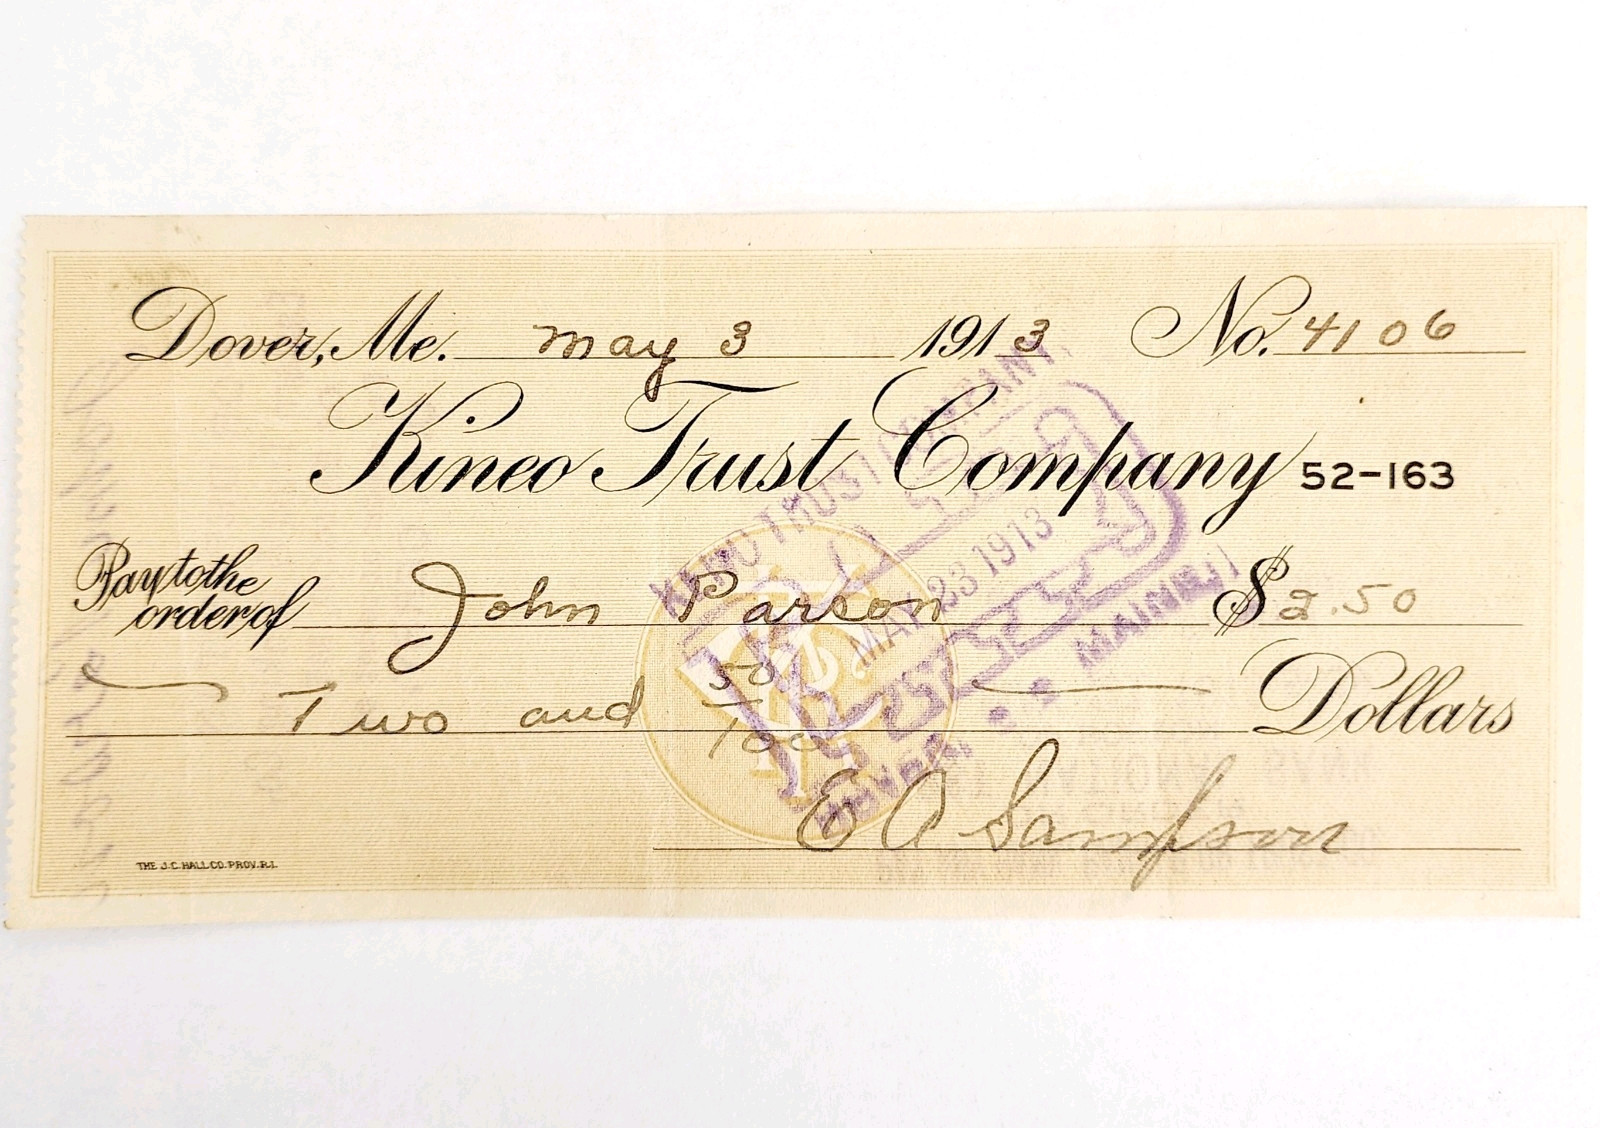 Dover, Me. May 3 1913 No. 4106
Kineo Trust Company 52-163
Pay to the
order of John Parson $2.50
Two and 50/100 Dollars
E A Sampson
THE J.C. HALL CO. PROV. R.I.
KINEO TRUST COMPANY
PAID
MAY 23 1913
MAINE